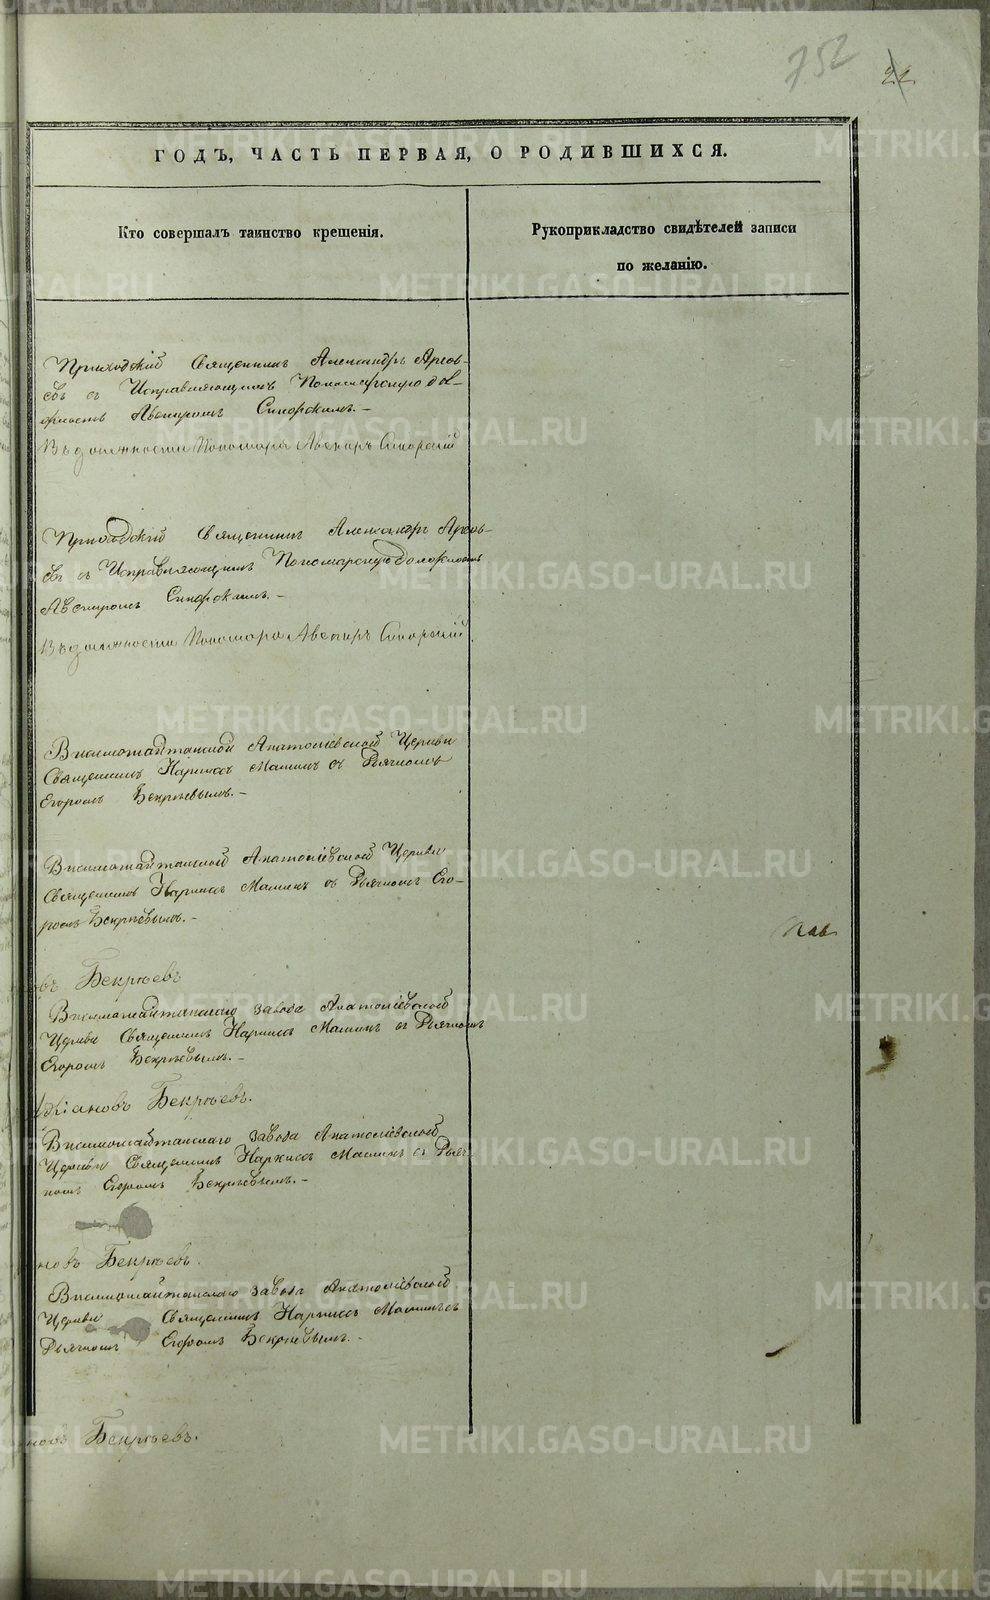 752
22
ГОДЪ, ЧАСТЬ ПЕРВАЯ, О РОДИВШИХСЯ.
Кто совершалъ таинство крещенія.
Рукоприкладство свидѣтелей записи
по желанію.
Приходскій Священникъ Александръ
съ Исправляющимъ Пономарскую дол-
жность Авениромъ Сикорскимъ.-
Въ должности Пономаря Авениръ Сикорскій
Приходскій Священникъ Александръ
съ Исправляющимъ Пономарскую должность
Авениромъ Сикорскимъ.-
Въ должности Пономаря Авениръ Сикорскій
Висимошайтанской Анатоліевской Церкви
Священникъ Наркисъ Маминъ съ Дьячкомъ
Егоромъ Бекрѣевымъ.-
Висимошайтанской Анатоліевской Церкви
Священникъ Наркисъ Маминъ съ Дьячкомъ Его-
ромъ Бекрѣевымъ.-
Пав
овъ Бекрѣевъ
Висимошайтанскаго завода Анатоліевской
Церкви Священникъ Наркисъ Маминъ съ Дьячкомъ
Егоромъ Бекрѣевымъ.-
кіановъ Бекрѣевъ.
Висимошайтанскаго завода Анатоліевской
Церкви Священникъ Наркисъ Маминъ съ Дьяч-
комъ Егоромъ Бекрѣевымъ.-
новъ Бекрѣевъ.
Висимошайтанскаго завода Анатоліевской
Церкви Священникъ Наркисъ Маминъ съ
Дьячкомъ Егоромъ Бекрѣевымъ.-
новъ Бекрѣевъ.
METRIKI.GASO-URAL.RU